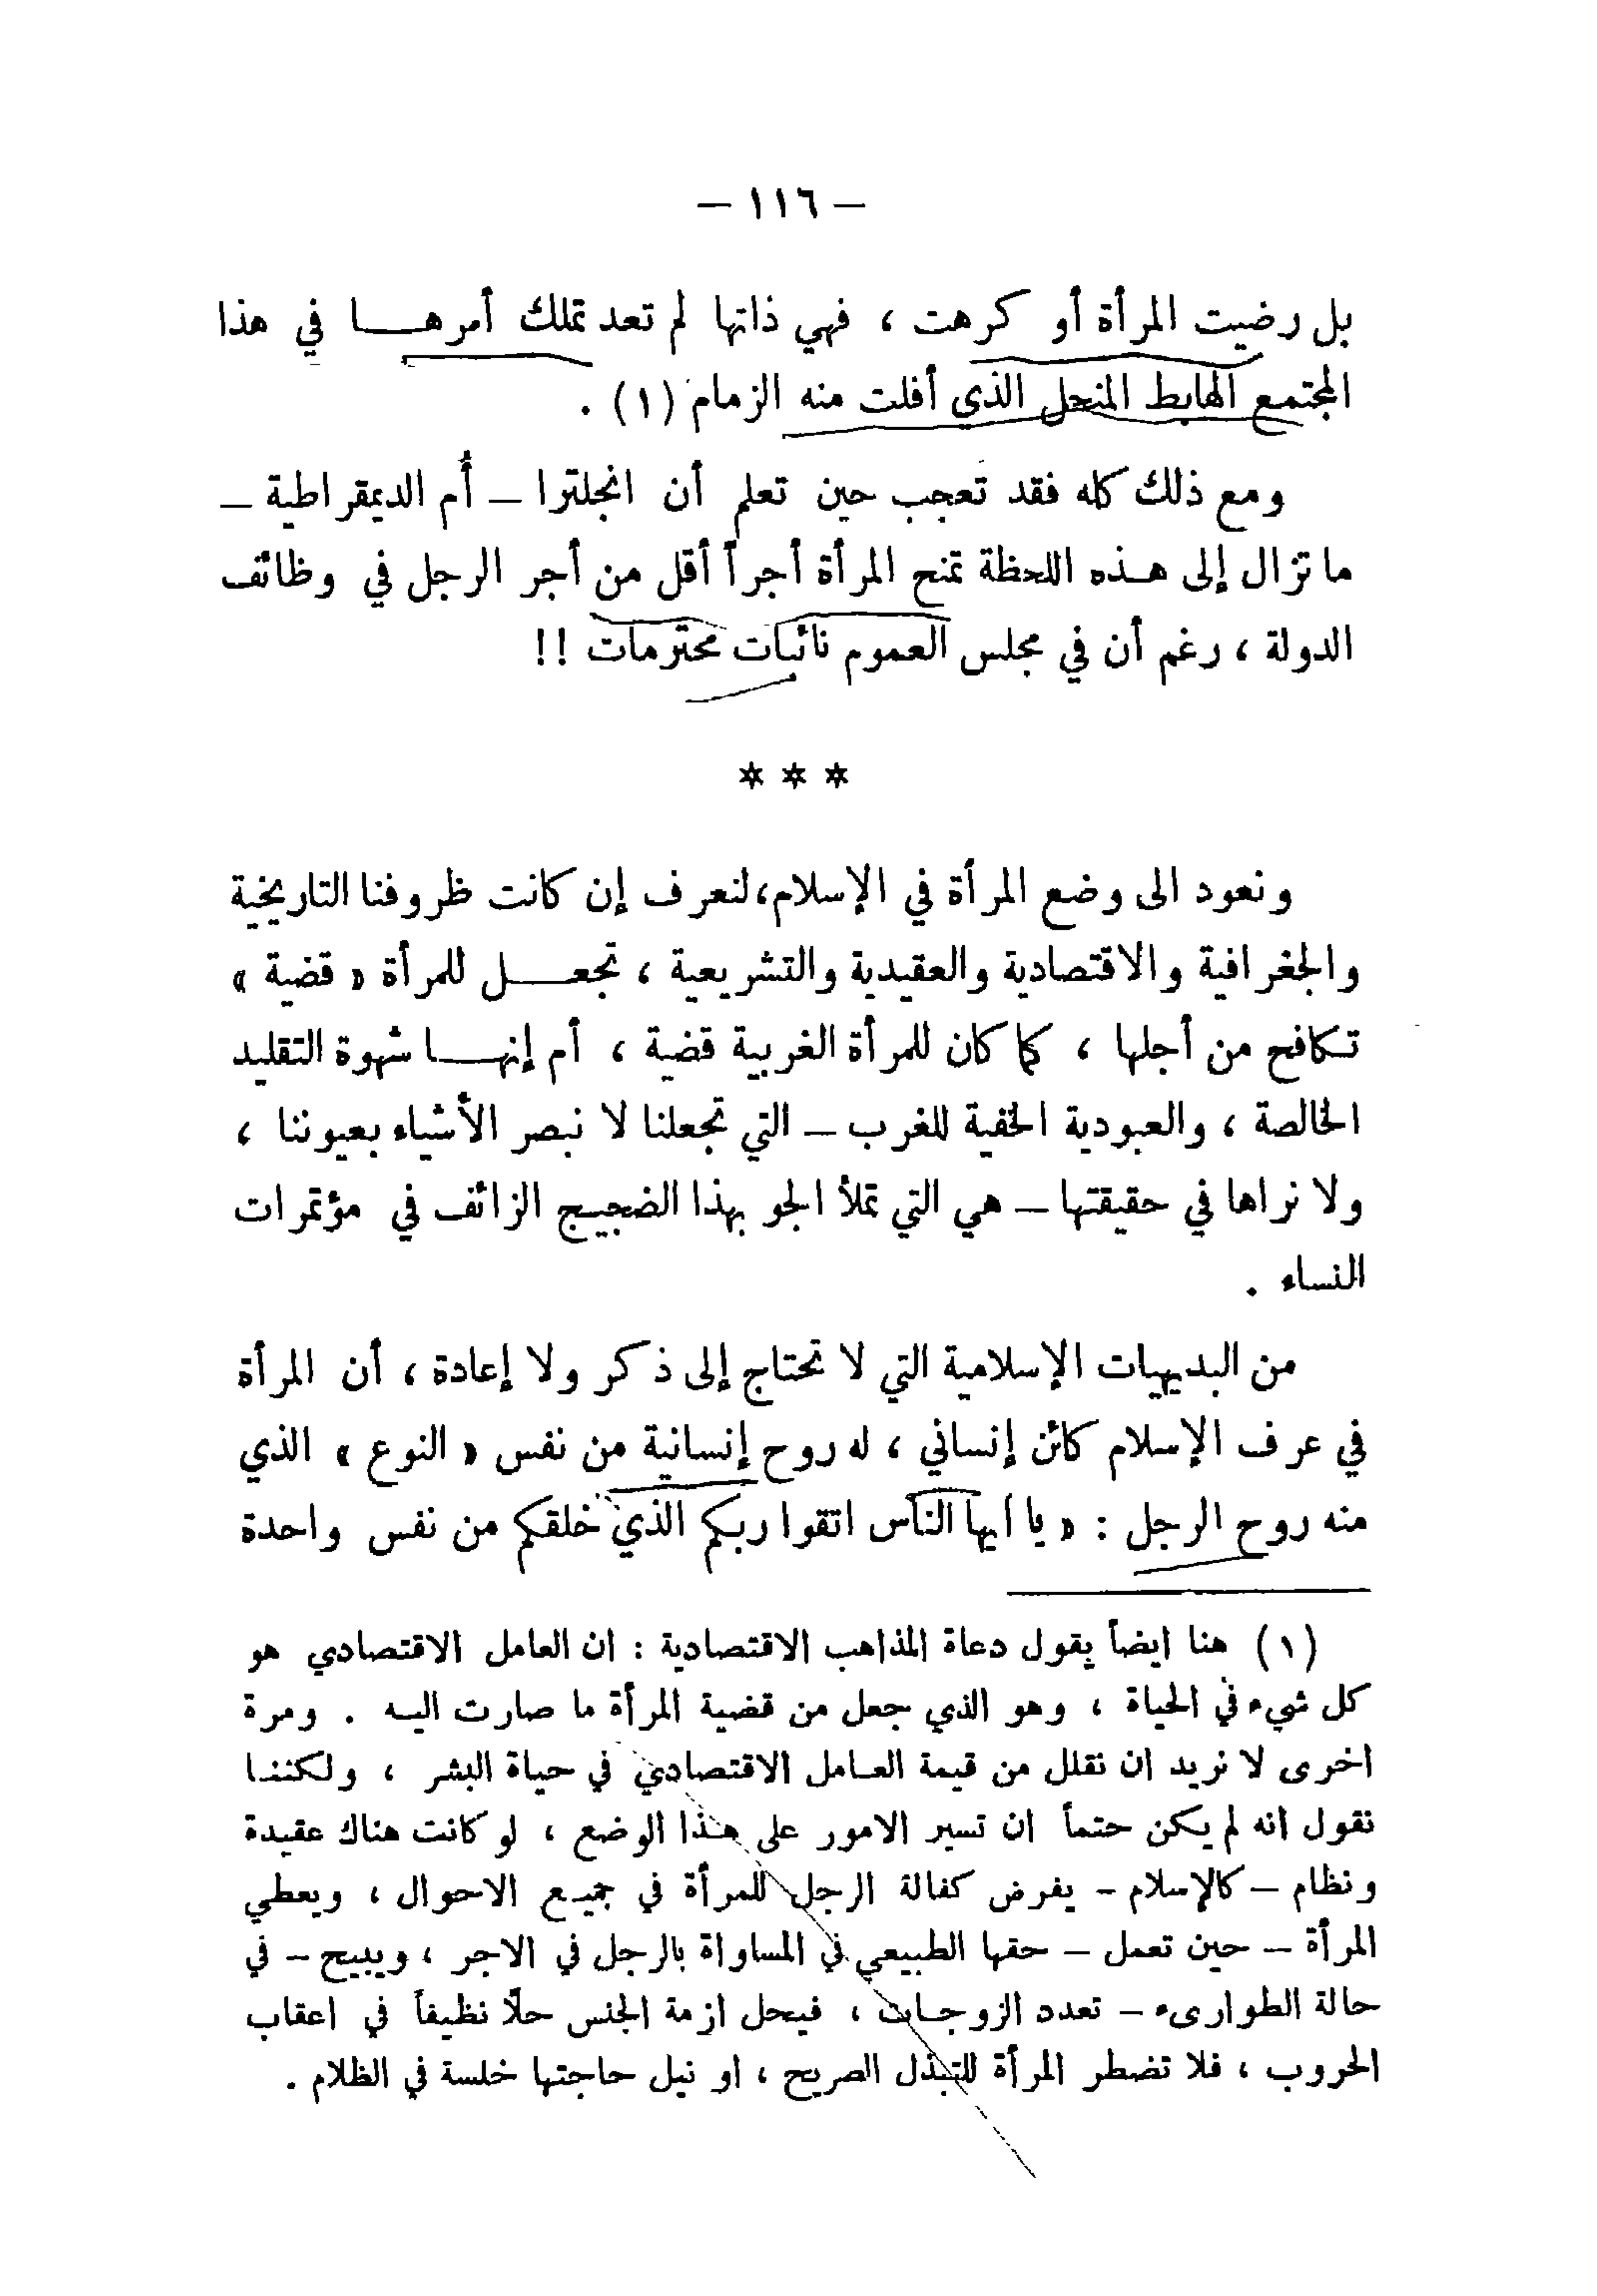 – ١١٦ –
بل رضيت المرأة أو كرهت ، فهي ذاتها لم تعد تملك أمرهـــا في هذا
المجتمع الهابط المنحل الذي أفلت منه الزمام (١) .
ومع ذلك كله فقد تعجب حين تعلم أن انجلترا – أُم الديمقراطية –
ما تزال إلى هـذه اللحظة تمنح المرأة أجراً أقل من أجر الرجل في وظائف
الدولة ، رغم أن في مجلس العموم نائبات محترمات !!
* * *
ونعود الى وضع المرأة في الإسلام،لنعرف إن كانت ظروفنا التاريخية
والجغرافية والاقتصادية والعقيدية والتشريعية ، تجعـــل للمرأة « قضية »
تكافح من أجلها ، كما كان للمرأة الغربية قضية ، أم إنهـــا شهوة التقليد
الخالصة ، والعبودية الخفية للغرب – التي تجعلنا لا نبصر الأشياء بعيوننا ،
ولا نراها في حقيقتها – هي التي تملأ الجو بهذا الضجيج الزائف في مؤتمرات
النساء .
من البديهيات الإسلامية التي لا تحتاج إلى ذكر ولا إعادة ، أن المرأة
في عرف الإسلام كائن إنساني ، له روح إنسانية من نفس « النوع » الذي
منه روح الرجل : « يا أيها الناس اتقوا ربكم الذي خلقكم من نفس واحدة
(١) هنا ايضاً يقول دعاة المذاهب الاقتصادية : ان العامل الاقتصادي هو
كل شيء في الحياة ، وهو الذي جعل من قضية المرأة ما صارت اليـه . ومرة
اخرى لا نريد ان نقلل من قيمة العـامل الاقتصادي في حياة البشر ، ولكننـا
نقول انه لم يكن حتماً ان تسير الامور على هـذا الوضع ، لو كانت هناك عقيدة
ونظام – كالإسلام – يفرض كفالة الرجل للمرأة في جميـع الاحوال ، ويعطي
المرأة – حين تعمل – حقها الطبيعي في المساواة بالرجل في الاجر ، ويبيح – في
حالة الطوارىء – تعدد الزوجـات ، فيحل ازمة الجنس حلّا نظيفاً في اعقاب
الحروب ، فلا تضطر المرأة للتبذل الصريح ، او نيل حاجتها خلسة في الظلام .